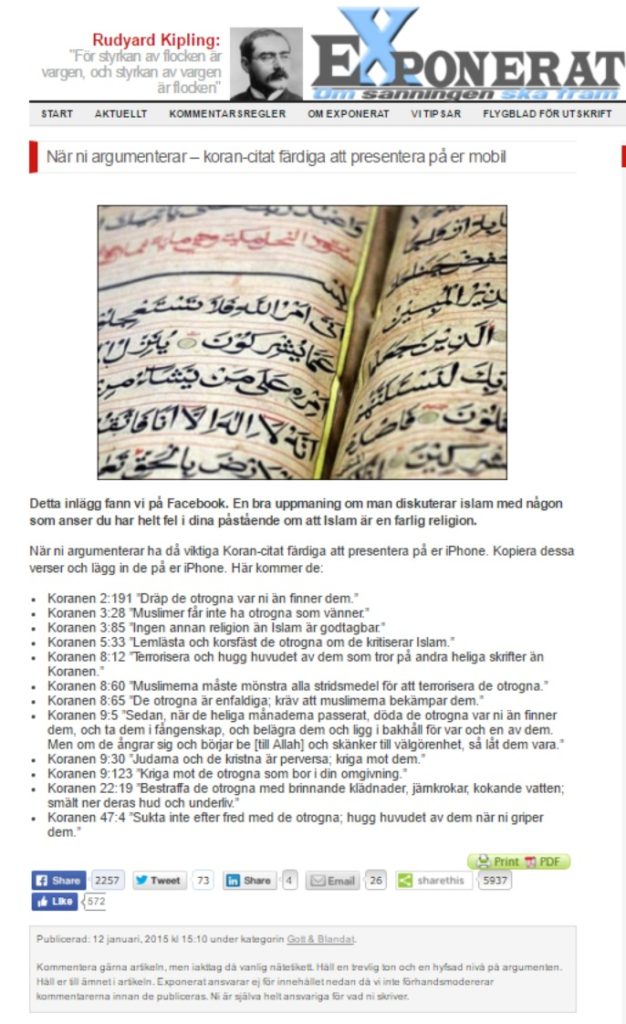 Rudyard Kipling:
"För styrkan av flocken är
vargen, och styrkan av vargen
är flocken"
EXPONERAT
Om sanningen ska fram
START AKTUELLT KOMMENTARSREGLER OM EXPONERAT VI TIPSAR FLYGBLAD FÖR UTSKRIFT
När ni argumenterar – koran-citat färdiga att presentera på er mobil
امر الله فلا تستعجلو
عما يشركون ينزل
امره على من يشاء من
انه لا اله الا انا فاتقو
الذين جعلو
Detta inlägg fann vi på Facebook. En bra uppmaning om man diskuterar islam med någon
som anser du har helt fel i dina påstående om att Islam är en farlig religion.
När ni argumenterar ha då viktiga Koran-citat färdiga att presentera på er iPhone. Kopiera dessa
verser och lägg in de på er iPhone. Här kommer de:
• Koranen 2:191 ”Dräp de otrogna var ni än finner dem.”
• Koranen 3:28 ”Muslimer får inte ha otrogna som vänner.”
• Koranen 3:85 ”Ingen annan religion än Islam är godtagbar.”
• Koranen 5:33 ”Lemlästa och korsfäst de otrogna om de kritiserar Islam.”
• Koranen 8:12 ”Terrorisera och hugg huvudet av dem som tror på andra heliga skrifter än
Koranen.”
• Koranen 8:60 ”Muslimerna måste mönstra alla stridsmedel för att terrorisera de otrogna.”
• Koranen 8:65 ”De otrogna är enfaldiga; kräv att muslimerna bekämpar dem.”
• Koranen 9:5 ”Sedan, när de heliga månaderna passerat, döda de otrogna var ni än finner
dem, och ta dem i fångenskap, och belägra dem och ligg i bakhåll för var och en av dem.
Men om de ångrar sig och börjar be [till Allah] och skänker till välgörenhet, så låt dem vara.”
• Koranen 9:30 ”Judarna och de kristna är perversa; kriga mot dem.”
• Koranen 9:123 ”Kriga mot de otrogna som bor i din omgivning.”
• Koranen 22:19 ”Bestraffa de otrogna med brinnande klädnader, järnkrokar, kokande vatten;
smält ner deras hud och underliv.”
• Koranen 47:4 ”Sukta inte efter fred med de otrogna; hugg huvudet av dem när ni griper
dem.”
Print PDF
Share 2257 Tweet 73 Share 4 Email 26 sharethis 5937
Like 572
Publicerad: 12 januari, 2015 kl 15:10 under kategorin Gott & Blandat.
Kommentera gärna artikeln, men iakttag då vanlig nätetikett. Håll en trevlig ton och en hyfsad nivå på argumenten.
Håll er till ämnet i artikeln. Exponerat ansvarar ej för innehållet nedan då vi inte förhandsmodererar
kommentarerna innan de publiceras. Ni är själva helt ansvariga för vad ni skriver.